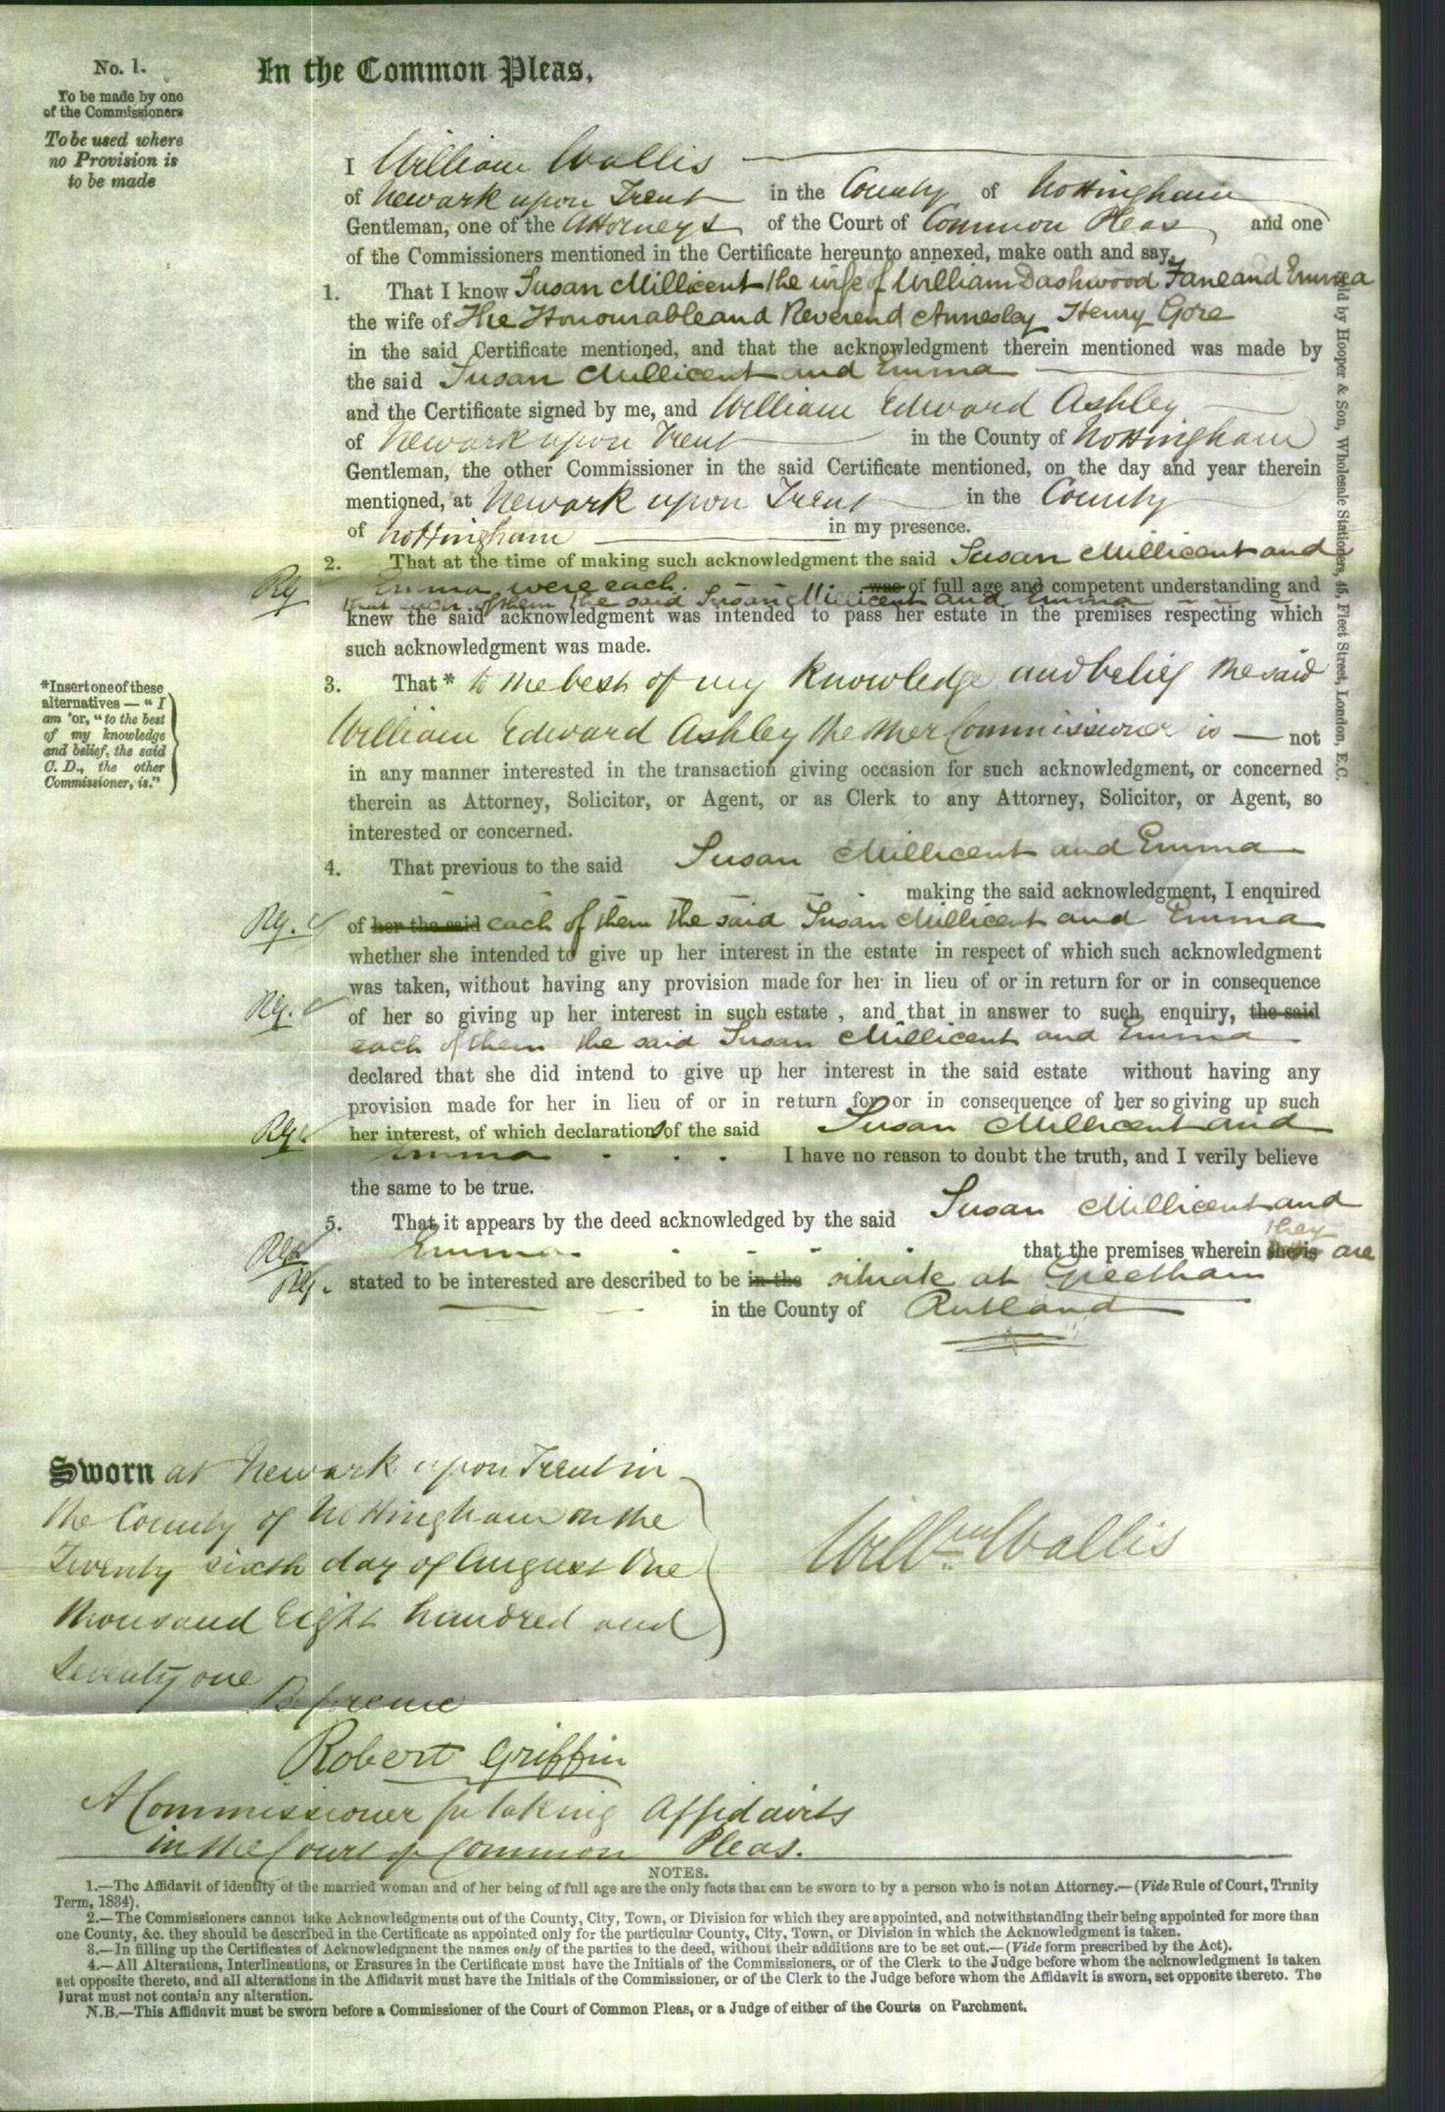 No. 1.
To be made by one
of the Commissioners
To be used where
no Provision is
to be made
In the Common Pleas.
I William Wallis
of Newark upon Trent in the County of Nottingham
Gentleman, one of the Attorneys of the Court of Common Pleas and one
of the Commissioners mentioned in the Certificate hereunto annexed, make oath and say,
1. That I know Susan Millicent the wife of William Dashwood Fane and Emma
the wife of The Honourable and Reverend Annesley Henry Gore
in the said Certificate mentioned, and that the acknowledgment therein mentioned was made by
the said Susan Millicent and Emma
and the Certificate signed by me, and William Edward Ashley
of Newark upon Trent in the County of Nottingham
Gentleman, the other Commissioner in the said Certificate mentioned, on the day and year therein
mentioned, at Newark upon Trent in the County
of Nottingham in my presence.
2. That at the time of making such acknowledgment the said Susan Millicent and
Emma were each was of full age and competent understanding and
that each of them the said Susan Millicent and Emma
knew the said acknowledgment was intended to pass her estate in the premises respecting which
such acknowledgment was made.
*Insert one of these
alternatives — "I
am" or, "to the best
of my knowledge
and belief, the said
C. D., the other
Commissioner, is."
3. That* to the best of my knowledge and belief the said
William Edward Ashley the other Commissioner is — not
in any manner interested in the transaction giving occasion for such acknowledgment, or concerned
therein as Attorney, Solicitor, or Agent, or as Clerk to any Attorney, Solicitor, or Agent, so
interested or concerned.
4. That previous to the said Susan Millicent and Emma
making the said acknowledgment, I enquired
of her the said each of them the said Susan Millicent and Emma
whether she intended to give up her interest in the estate in respect of which such acknowledgment
was taken, without having any provision made for her in lieu of or in return for or in consequence
of her so giving up her interest in such estate , and that in answer to such enquiry, the said
each of them the said Susan Millicent and Emma
declared that she did intend to give up her interest in the said estate without having any
provision made for her in lieu of or in return for or in consequence of her so giving up such
her interest, of which declarations of the said Susan Millicent and
Emma I have no reason to doubt the truth, and I verily believe
the same to be true.
5. That it appears by the deed acknowledged by the said Susan Millicent and
Emma that the premises wherein she is they are
stated to be interested are described to be in the situate at Greetham
in the County of Rutland
Sold by Hooper & Son, Wholesale Stationers, 45, Fleet Street, London, E.C.
Sworn at Newark upon Trent in
the County of Nottingham on the
Twenty sixth day of August One
thousand Eight hundred and
Seventy one
Before me
Willm Wallis
Robert Griffin
A Commissioner for taking Affidavits
in the Court of Common Pleas.
NOTES.
1.—The Affidavit of identity of the married woman and of her being of full age are the only facts that can be sworn to by a person who is not an Attorney.—(Vide Rule of Court, Trinity
Term, 1834).
2.—The Commissioners cannot take Acknowledgments out of the County, City, Town, or Division for which they are appointed, and notwithstanding their being appointed for more than
one County, &c. they should be described in the Certificate as appointed only for the particular County, City, Town, or Division in which the Acknowledgment is taken.
3.—In filling up the Certificates of Acknowledgment the names only of the parties to the deed, without their additions are to be set out.—(Vide form prescribed by the Act).
4.—All Alterations, Interlineations, or Erasures in the Certificate must have the Initials of the Commissioners, or of the Clerk to the Judge before whom the acknowledgment is taken
set opposite thereto, and all alterations in the Affidavit must have the Initials of the Commissioner, or of the Clerk to the Judge before whom the Affidavit is sworn, set opposite thereto. The
Jurat must not contain any alteration.
N.B.—This Affidavit must be sworn before a Commissioner of the Court of Common Pleas, or a Judge of either of the Courts on Parchment.